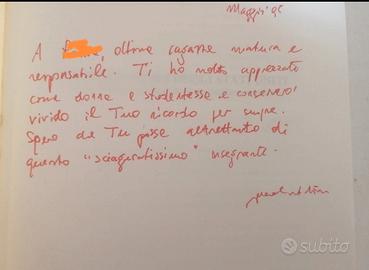 Maggio '95
A , ottima ragazza matura e
responsabile. Ti ho molto apprezzato
come donna e studentessa e conserverò
vivido il Tuo ricordo per sempre.
Spero che Tu possa altrettanto di
questo "sciaguratissimo" insegnante.
subito